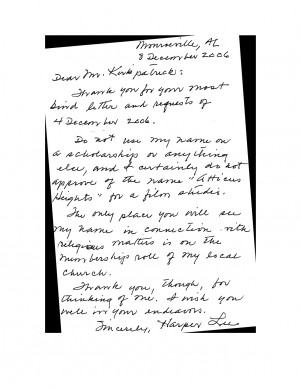 Monroeville, AL
8 December 2006
Dear Mr. Kirkpatrick:
Thank you for your most
kind letter and requests of
4 December 2006.
Do not use my name on
a scholarship or anything
else, and I certainly do not
approve of the name "Atticus
Heights" for a film studio.
The only place you will see
my name in connection with
religious matters is on the
membership roll of my local
church.
Thank you, though, for
thinking of me. I wish you
well in your endeavors.
Sincerely, Harper Lee